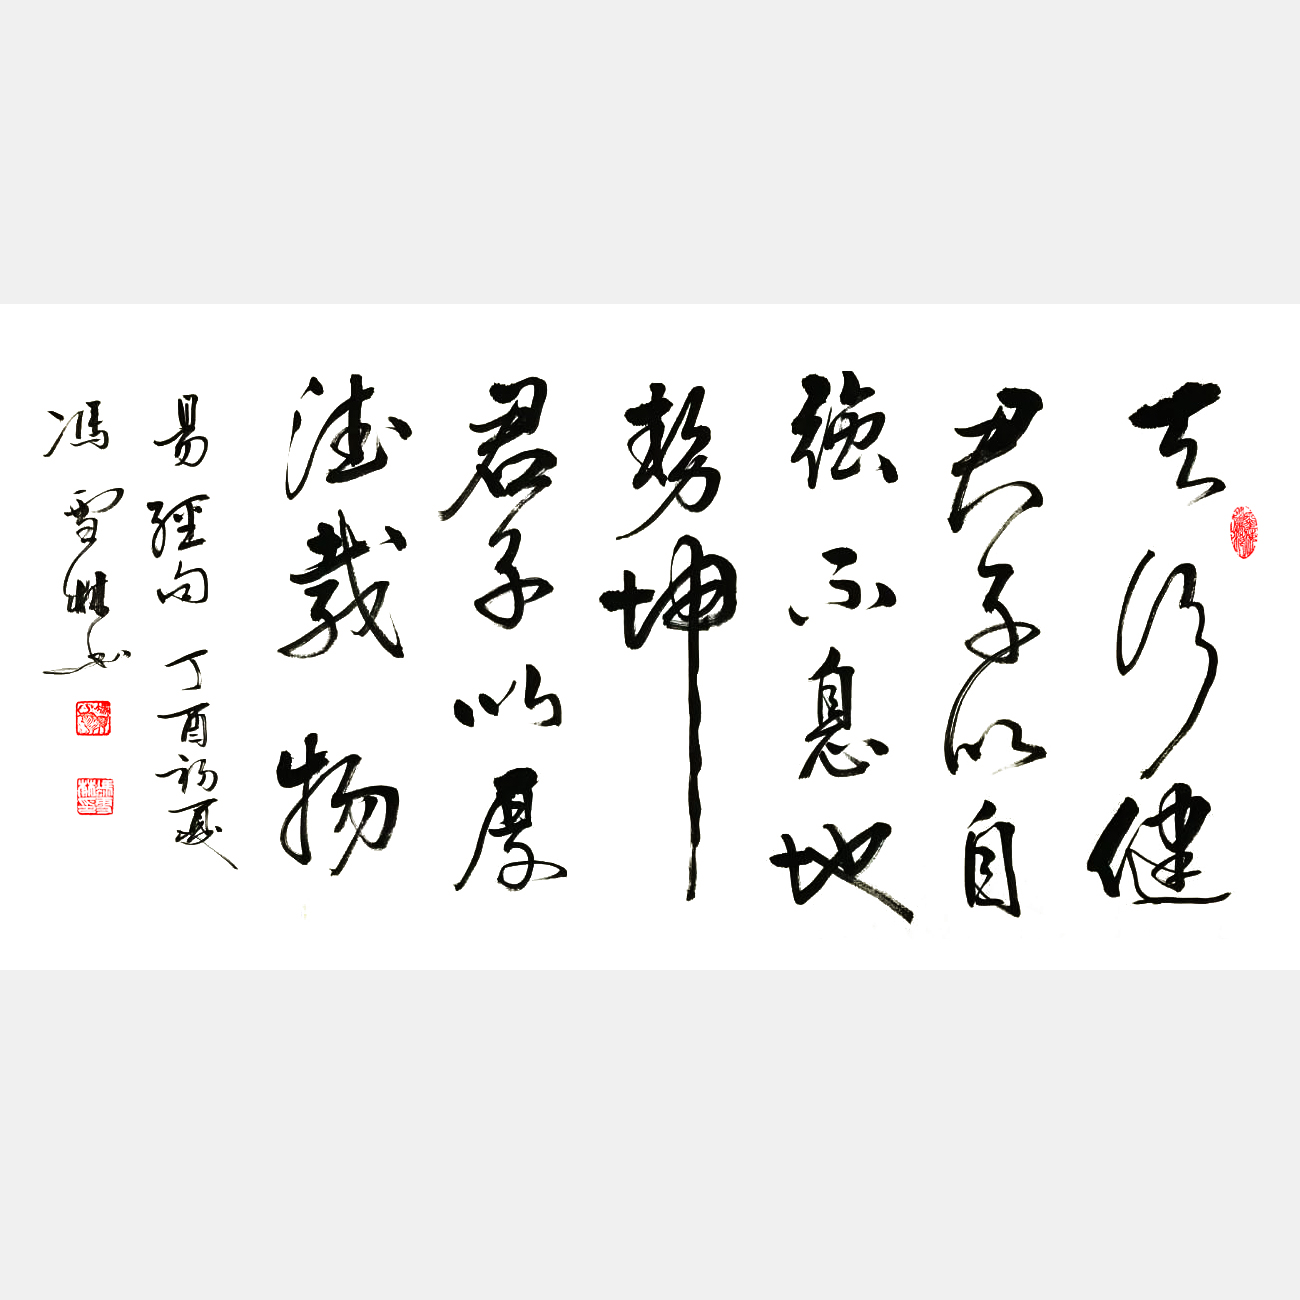 天行健
君子以自
強不息地
勢坤
君子以厚
德載物
易經句 丁酉初夏
馮雪林书